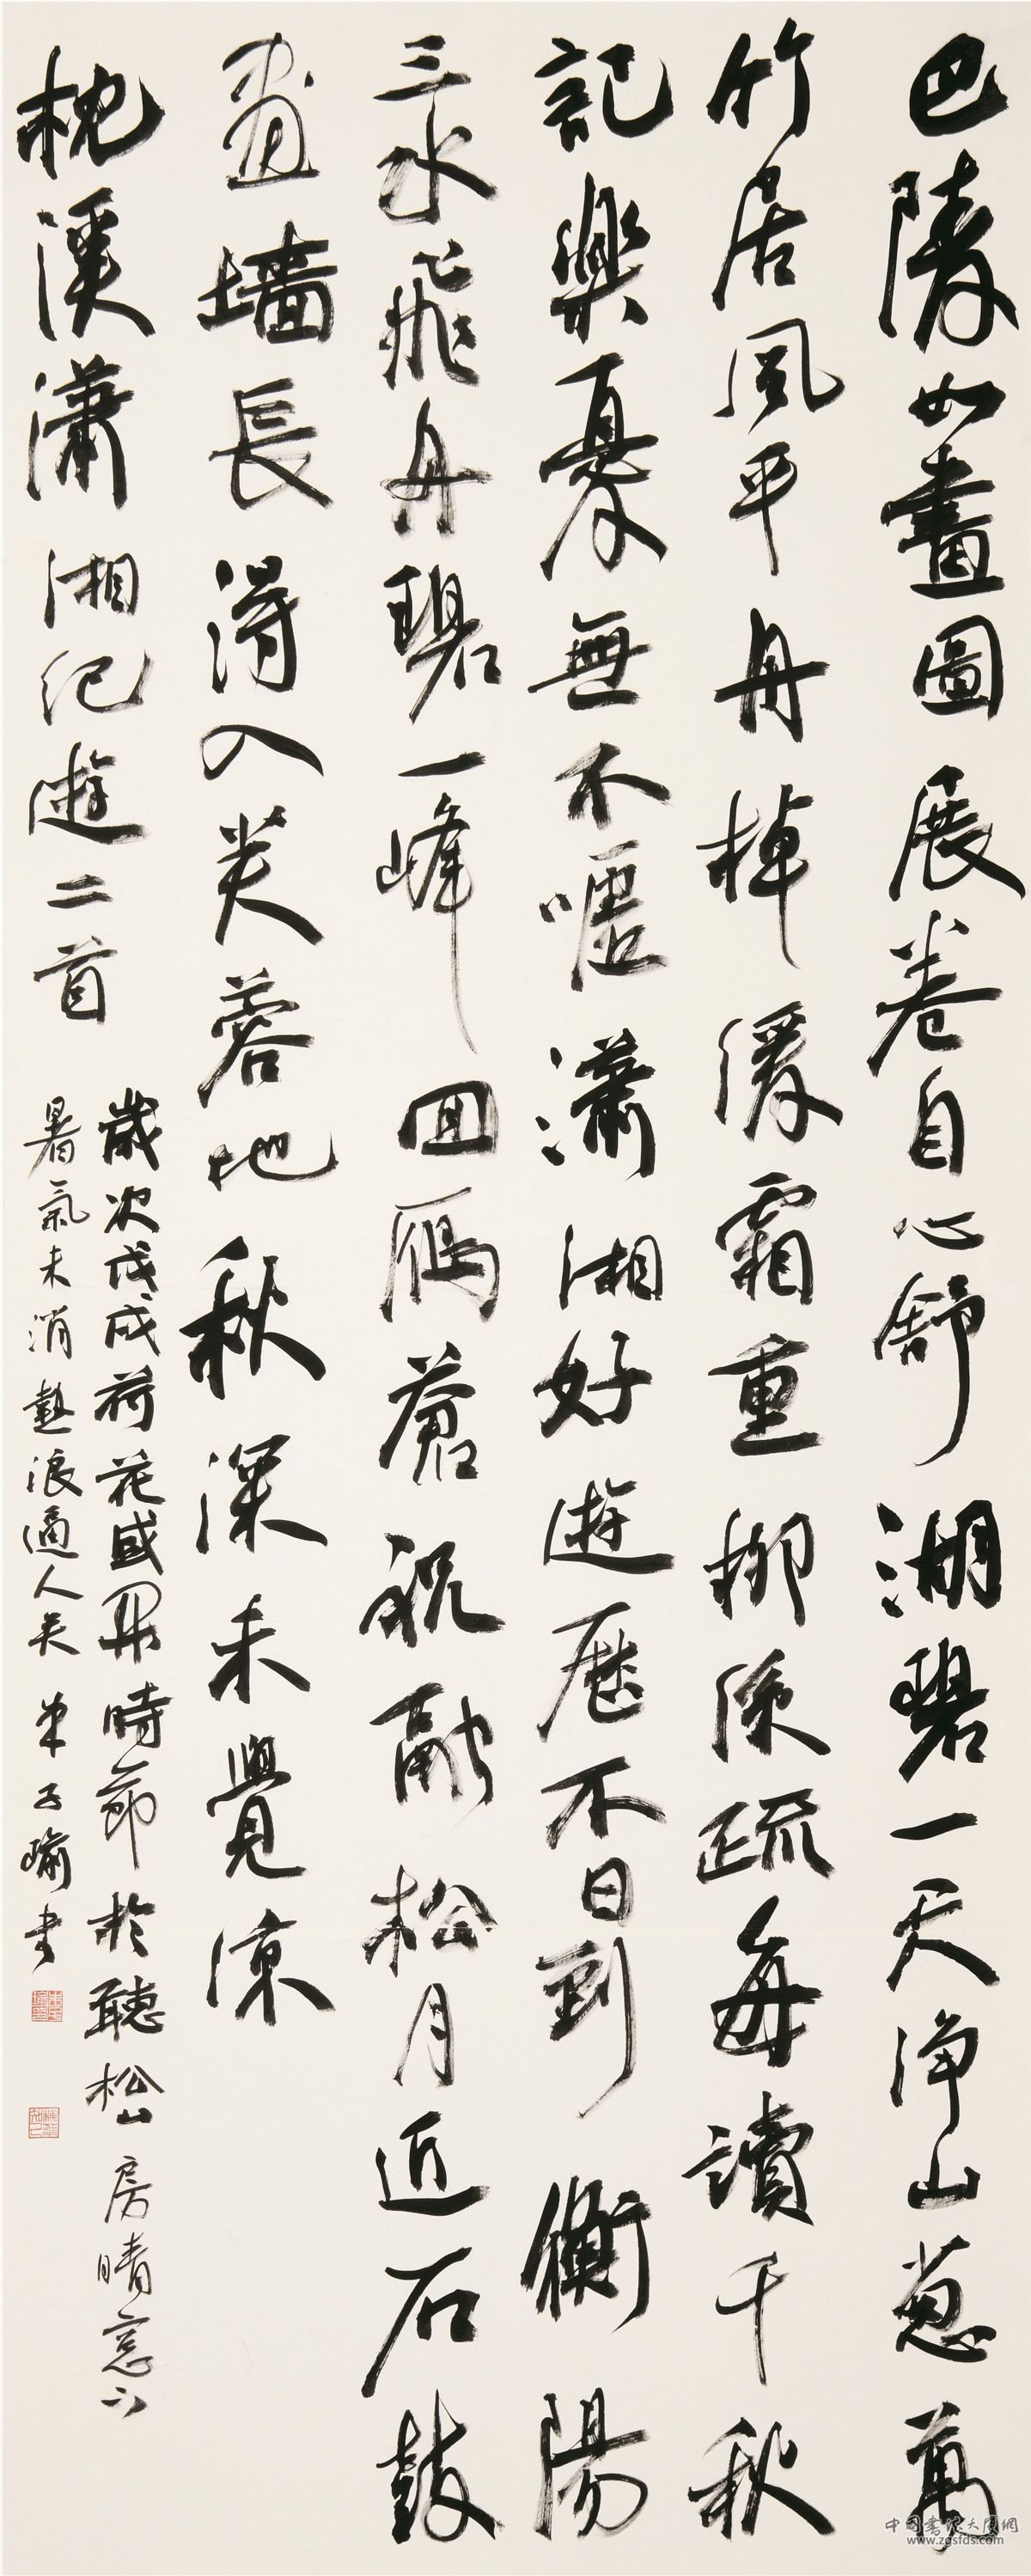 巴陵如畫圖展卷自心舒湖碧一天淨山蔥萬
竹居風平舟棹緩霜重柳條疏每讀千秋
記樂憂無不噓瀟湘好遊歷不日到衡陽
三水飛舟碧一峰回雁蒼祝融松月近石鼓
畫墙長漫入芙蓉地秋深未覺涼
枕溪瀟湘紀遊二首
歲次戊戌荷花盛開時節於聽松山房晴窓下
暑氣未消熱浪逼人矣朱子瑜書
中国书法大风網
www.zgsfds.com